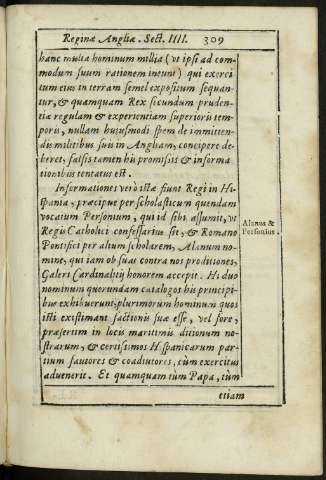 Reginæ Angliæ. Sect. IIII. 309
hanc multa hominum millia (vt ipsi ad com-
modum suum rationem ineunt) qui exerci
tum eius in terram semel expositum sequan-
tur, & quamquam Rex secundum pruden-
tiæ regulam & experientiam superioris tem-
poris, nullam huiusmodi spem de immitten-
dis militibus suis in Angliam, concipere de-
beret, falsis tamen his promissis & informa
tionibus tentatus est.
Informationes verò istæ fiunt Regi in Hi-
spania, præcipue per scholasticum quendam
vocatum Personium, qui id sibi assumit, vt
Regis Catholici confessarius sit, & Romano
Pontifici per alium scholarem, Alanum no-
mine, qui iam ob suas contra nos proditiones,
Galeri Cardinalitij honorem accepit. Hi duo
nominum quorundam catalogos his principi
bus exhibuerunt, plurimorum hominum quos
isti existimant factionis suæ esse, vel fore,
præsertim in locis maritimis ditionum no-
strarum, & certissimos Hispanicarum par-
tium fautores & coadiutores, cùm exercitus
aduenerit. Et quamquam tùm Papa, tùm
etiam
Alanus &
Personius.